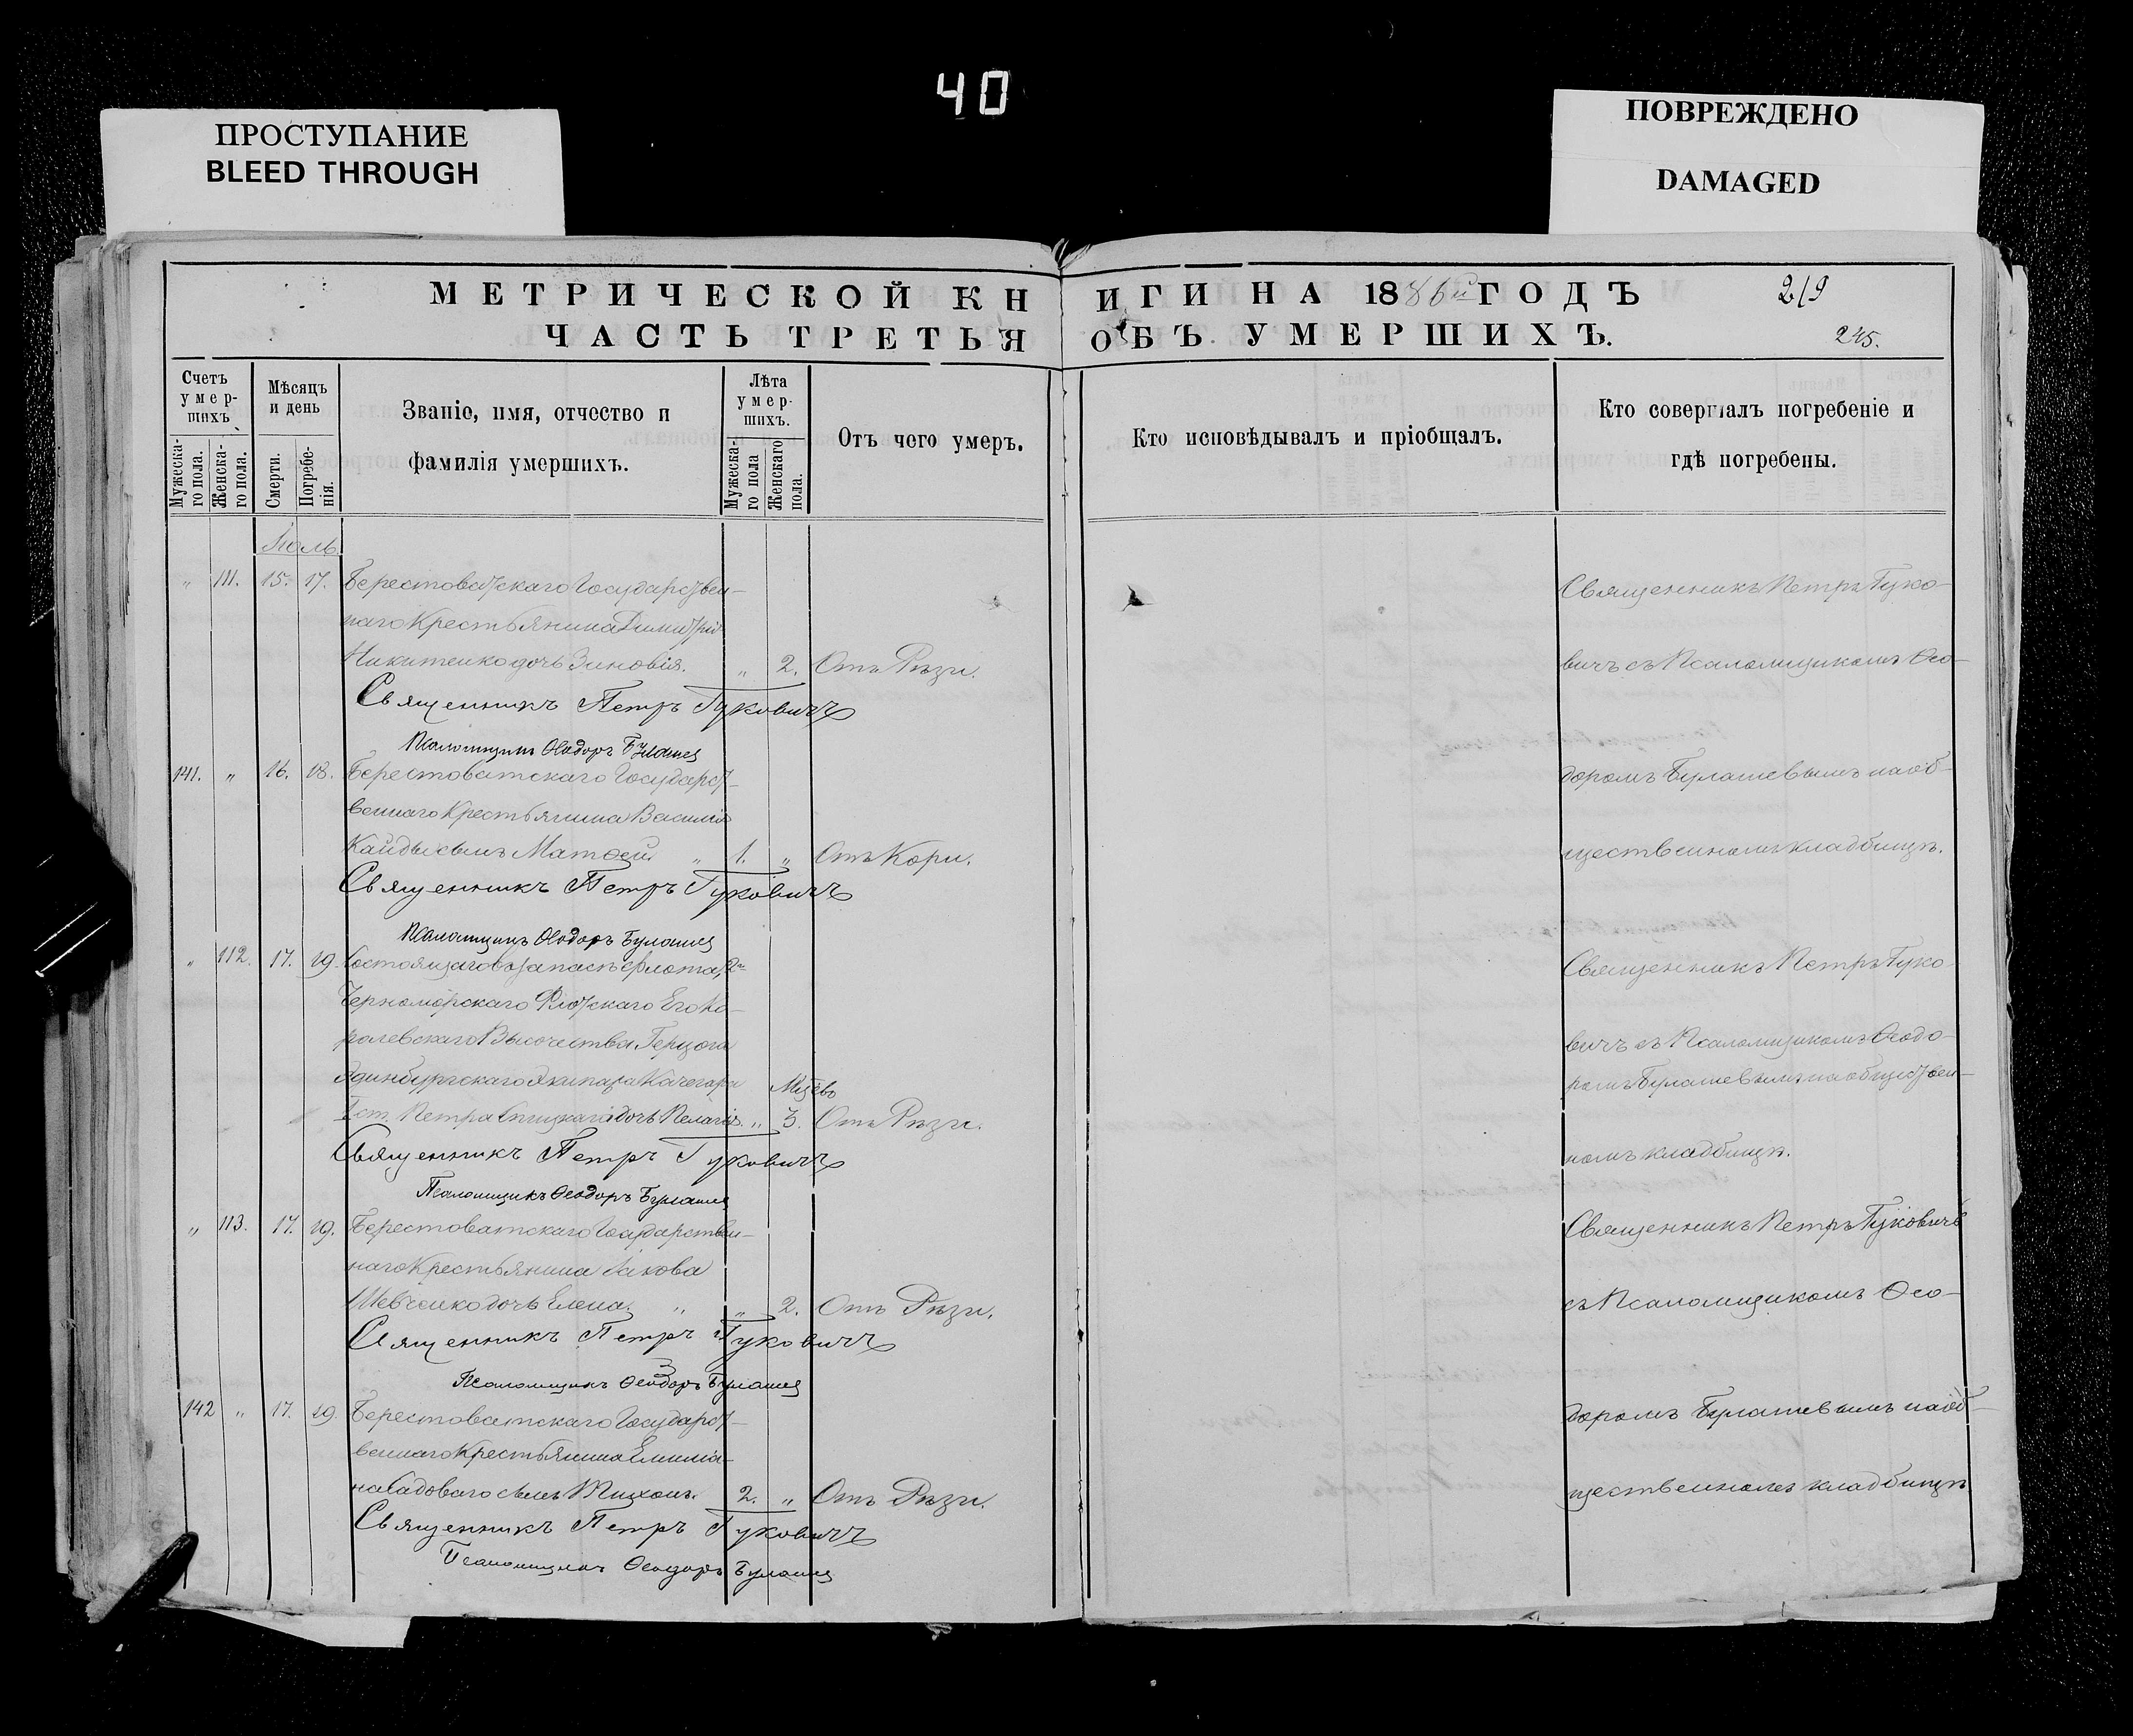 40
ПРОСТУПАНИЕ
BLEED THROUGH
ПОВРЕЖДЕНО
DAMAGED
МЕТРИЧЕСКОЙ КНИГИ НА 1886й ГОДЪ
219
ЧАСТЬ ТРЕТЬЯ ОБЪ УМЕРШИХЪ.
245.
Счетъ умер-шихъ.
Мужеска-го пола.
Женска-го пола.
Мѣсяцъ и день
Смерти.
Погребе-нія.
Званіе, имя, отчество и
фамилія умершихъ.
Лѣта умер-шихъ.
Мужеска-го пола
Женскаго пола.
Отъ чего умеръ.
Кто исповѣдывалъ и пріобщалъ.
Кто совершалъ погребеніе и
гдѣ погребены.
Іюль
" 111. 15. 17. Берестоватскаго Государствен-
наго Крестьянина Димитрія
Никитенко дочь Зиновія. " 2. Отъ Рѣзи.
Священникъ Петръ Гуковичъ
Псаломщикъ Ѳеодоръ Булашев
Священникъ Петръ Гуко-
вичъ съ Псаломщикомъ Ѳео-
141. " 16. 18. Берестоватскаго Государст-
веннаго Крестьянина Василія
Кайды сынъ Матѳей. " 1. " Отъ Кори.
Священникъ Петръ Гуковичъ
Псаломщикъ Ѳеодоръ Булашев
доромъ Булашевымъ на об-
щественномъ кладбищѣ.
" 112. 17. 19. Состоящаго въ запасѣ флота, 2го
Черноморскаго Флотскаго Его Ко-
ролевскаго Высочества Герцога
Эдинбургскаго Экипажа Кочегара
Петра дочь Пелагія. " 3. Отъ Рѣзи.
Священникъ Петръ Гуковичъ
Псаломщикъ Ѳеодоръ Булашев
Священникъ Петръ Гуко-
вичъ съ Псаломщикомъ Ѳеодо-
ромъ Булашевымъ на обществен-
номъ кладбищѣ.
" 113. 17. 19. Берестоватскаго Государствен-
наго Крестьянина Іакова
Шевченко дочь Елена. " " 2. Отъ Рѣзи.
Священникъ Петръ Гуковичъ
Псаломщикъ Ѳеодоръ Булашев
Священникъ Петръ Гуковичъ
съ Псаломщикомъ Ѳео-
142 " 17. 19. Берестоватскаго Государст-
веннаго Крестьянина Емилiа-
на Садоваго сынъ Тихонъ. 2. " Отъ Рѣзи.
Священникъ Петръ Гуковичъ
Псаломщикъ Ѳеодоръ Булашев
доромъ Булашевымъ на об-
щественномъ кладбищѣ